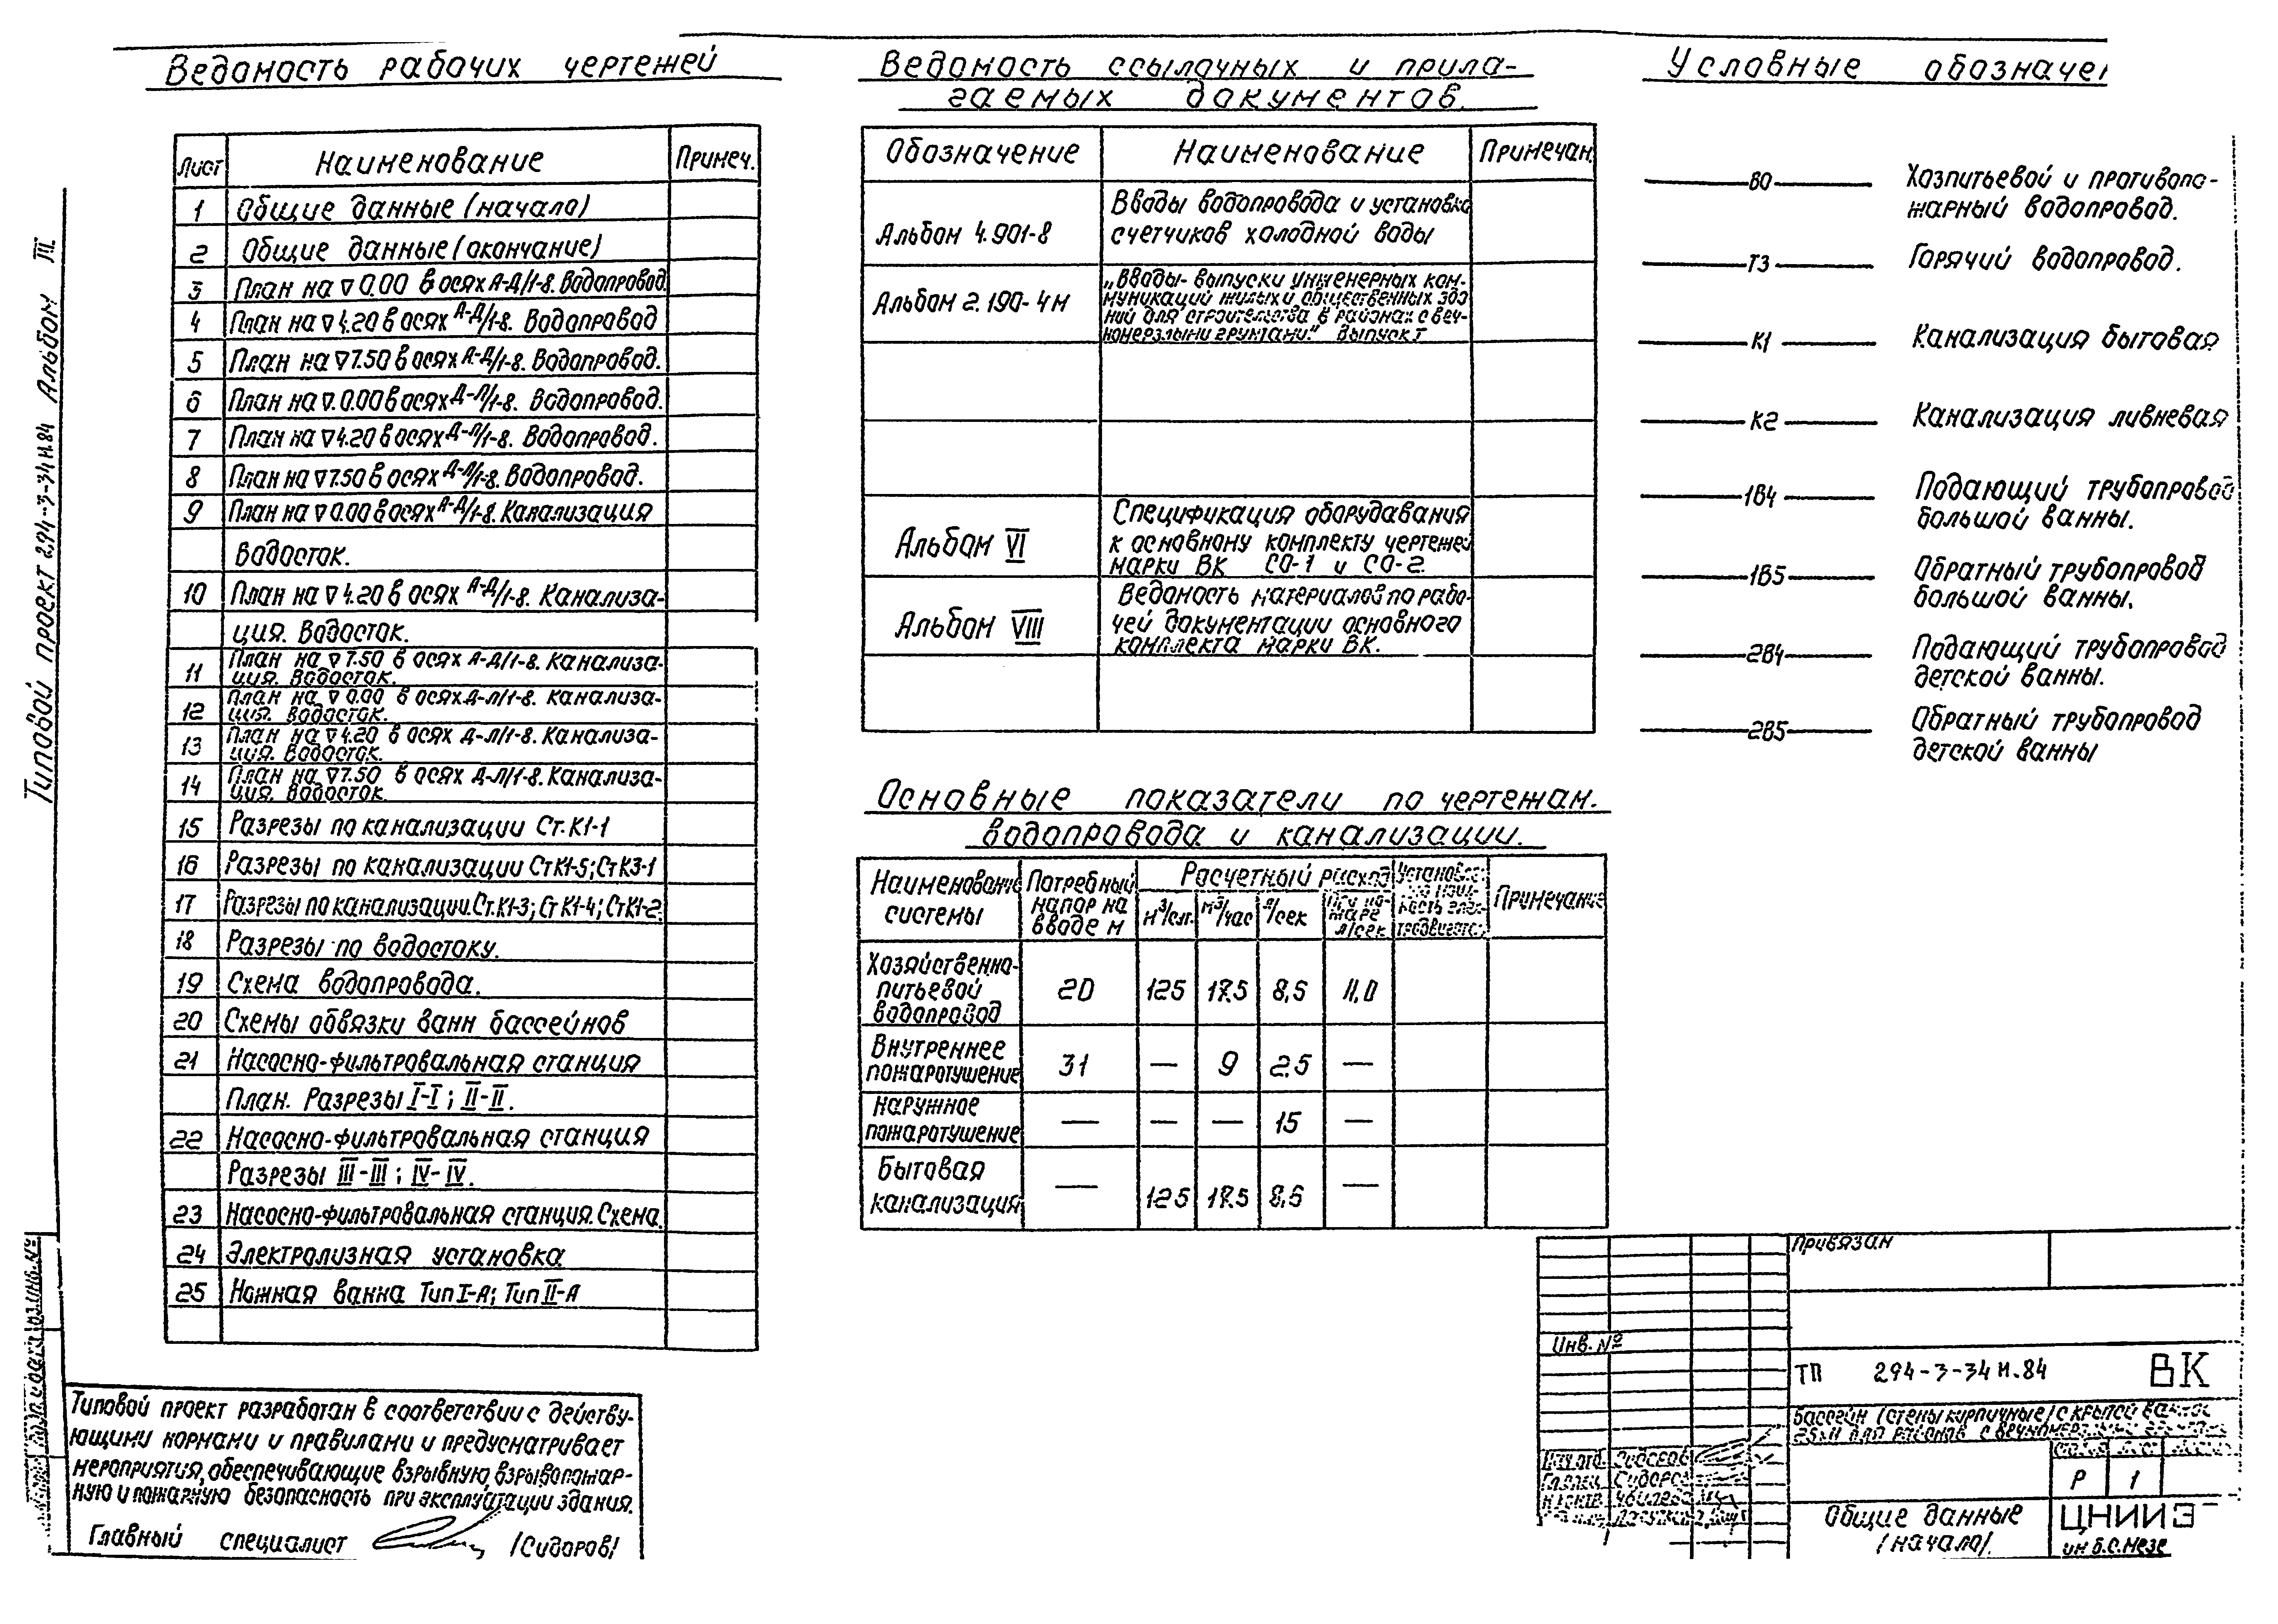 Типовой проект 294-3-34м.84 Альбом III
Ведомость рабочих чертежей
Лист Наименование Примеч.
1 Общие данные (начало)
2 Общие данные (окончание)
3 План на ▽ 0.00 в осях А-Д/1-8. Водопровод.
4 План на ▽ 4.20 в осях А-Д/1-8. Водопровод
5 План на ▽ 7.50 в осях А-Д/1-8. Водопровод.
6 План на ▽. 0.00 в осях Д-Л/1-8. Водопровод.
7 План на ▽ 4.20 в осях Д-Л/1-8. Водопровод.
8 План на ▽ 7.50 в осях Д-Л/1-8. Водопровод.
9 План на ▽ 0.00 в осях А-Д/1-8. Канализация
Водосток.
10 План на ▽ 4.20 в осях А-Д/1-8. Канализа-
ция. Водосток.
11 План на ▽ 7.50 в осях А-Д/1-8. Канализа-
ция. Водосток.
12 План на ▽ 0.00 в осях Д-Л/1-8. Канализа-
ция. Водосток.
13 План на ▽ 4.20 в осях Д-Л/1-8. Канализа-
ция. Водосток.
14 План на ▽ 7.50 в осях Д-Л/1-8. Канализа-
ция. Водосток.
15 Разрезы по канализации Ст.К1-1
16 Разрезы по канализации Ст К1-5; Ст К3-1
17 Разрезы по канализации. Ст.К1-3; Ст К1-4; Ст К1-2.
18 Разрезы по водостоку.
19 Схема водопровода.
20 Схемы обвязки ванн бассейнов
21 Насосно-фильтровальная станция
План. Разрезы I-I; II-II.
22 Насосно-фильтровальная станция
Разрезы III-III; IV-IV.
23 Насосно-фильтровальная станция. Схема.
24 Электролизная установка
25 Ножная ванна Тип I-А; Тип II-А
Типовой проект разработан в соответствии с действу-
ющими нормами и правилами и предусматривает
мероприятия, обеспечивающие взрывную, взрывопожар-
ную и пожарную безопасность при эксплуатации здания.
Главный специалист /Сидоров/
Ведомость ссылочных и прила-
гаемых документов.
Обозначение Наименование Примечан.
Альбом 4.901-8
Вводы водопровода и установка
счетчиков холодной воды
Альбом 2.190-4м
„Вводы-выпуски инженерных ком-
муникаций жилых и общественных зда
ний для строительства в районах с веч-
номерзлыми грунтами." Выпуск I
Альбом VI
Спецификация оборудавания
к основному комплекту чертежей
марки ВК СО-1 и СО-2.
Альбом VIII
Ведомость материалов по рабо-
чей документации основного
комплекта марки ВК.
Основные показатели по чертежам.
водопровода и канализации.
Наименование системы
Потребный напор на вводе м
Расчетный расход
м³/сут. м³/час л/сек
При по-
жаре
л/сек
Примечание
Хозяйственно-
питьевой
водопровод
20 125 17.5 8,6 11,0
Внутреннее
пожаротушение
31 — 9 2.5 —
Наружное
пожаротушение
— — — 15 —
Бытовая
канализация
— 125 17.5 8,6 —
Условные обозначен
В0 Хозпитьевой и противопо-
жарный водопровод.
Т3 Горячий водопровод.
К1 Канализация бытовая
К2 Канализация ливневая
1В4 Подающий трубопровод
большой ванны.
1В5 Обратный трубопровод
большой ванны.
2В4 Подающий трубопровод
детской ванны.
2В5 Обратный трубопровод
детской ванны
Привязан
Инв. №
ТП 294-3-34м.84 ВК
Бассейн (стены кирпичные) с крытой
Р 1
Общие данные
/начало/.
ЦНИИЭ
им Б.С. Мезе